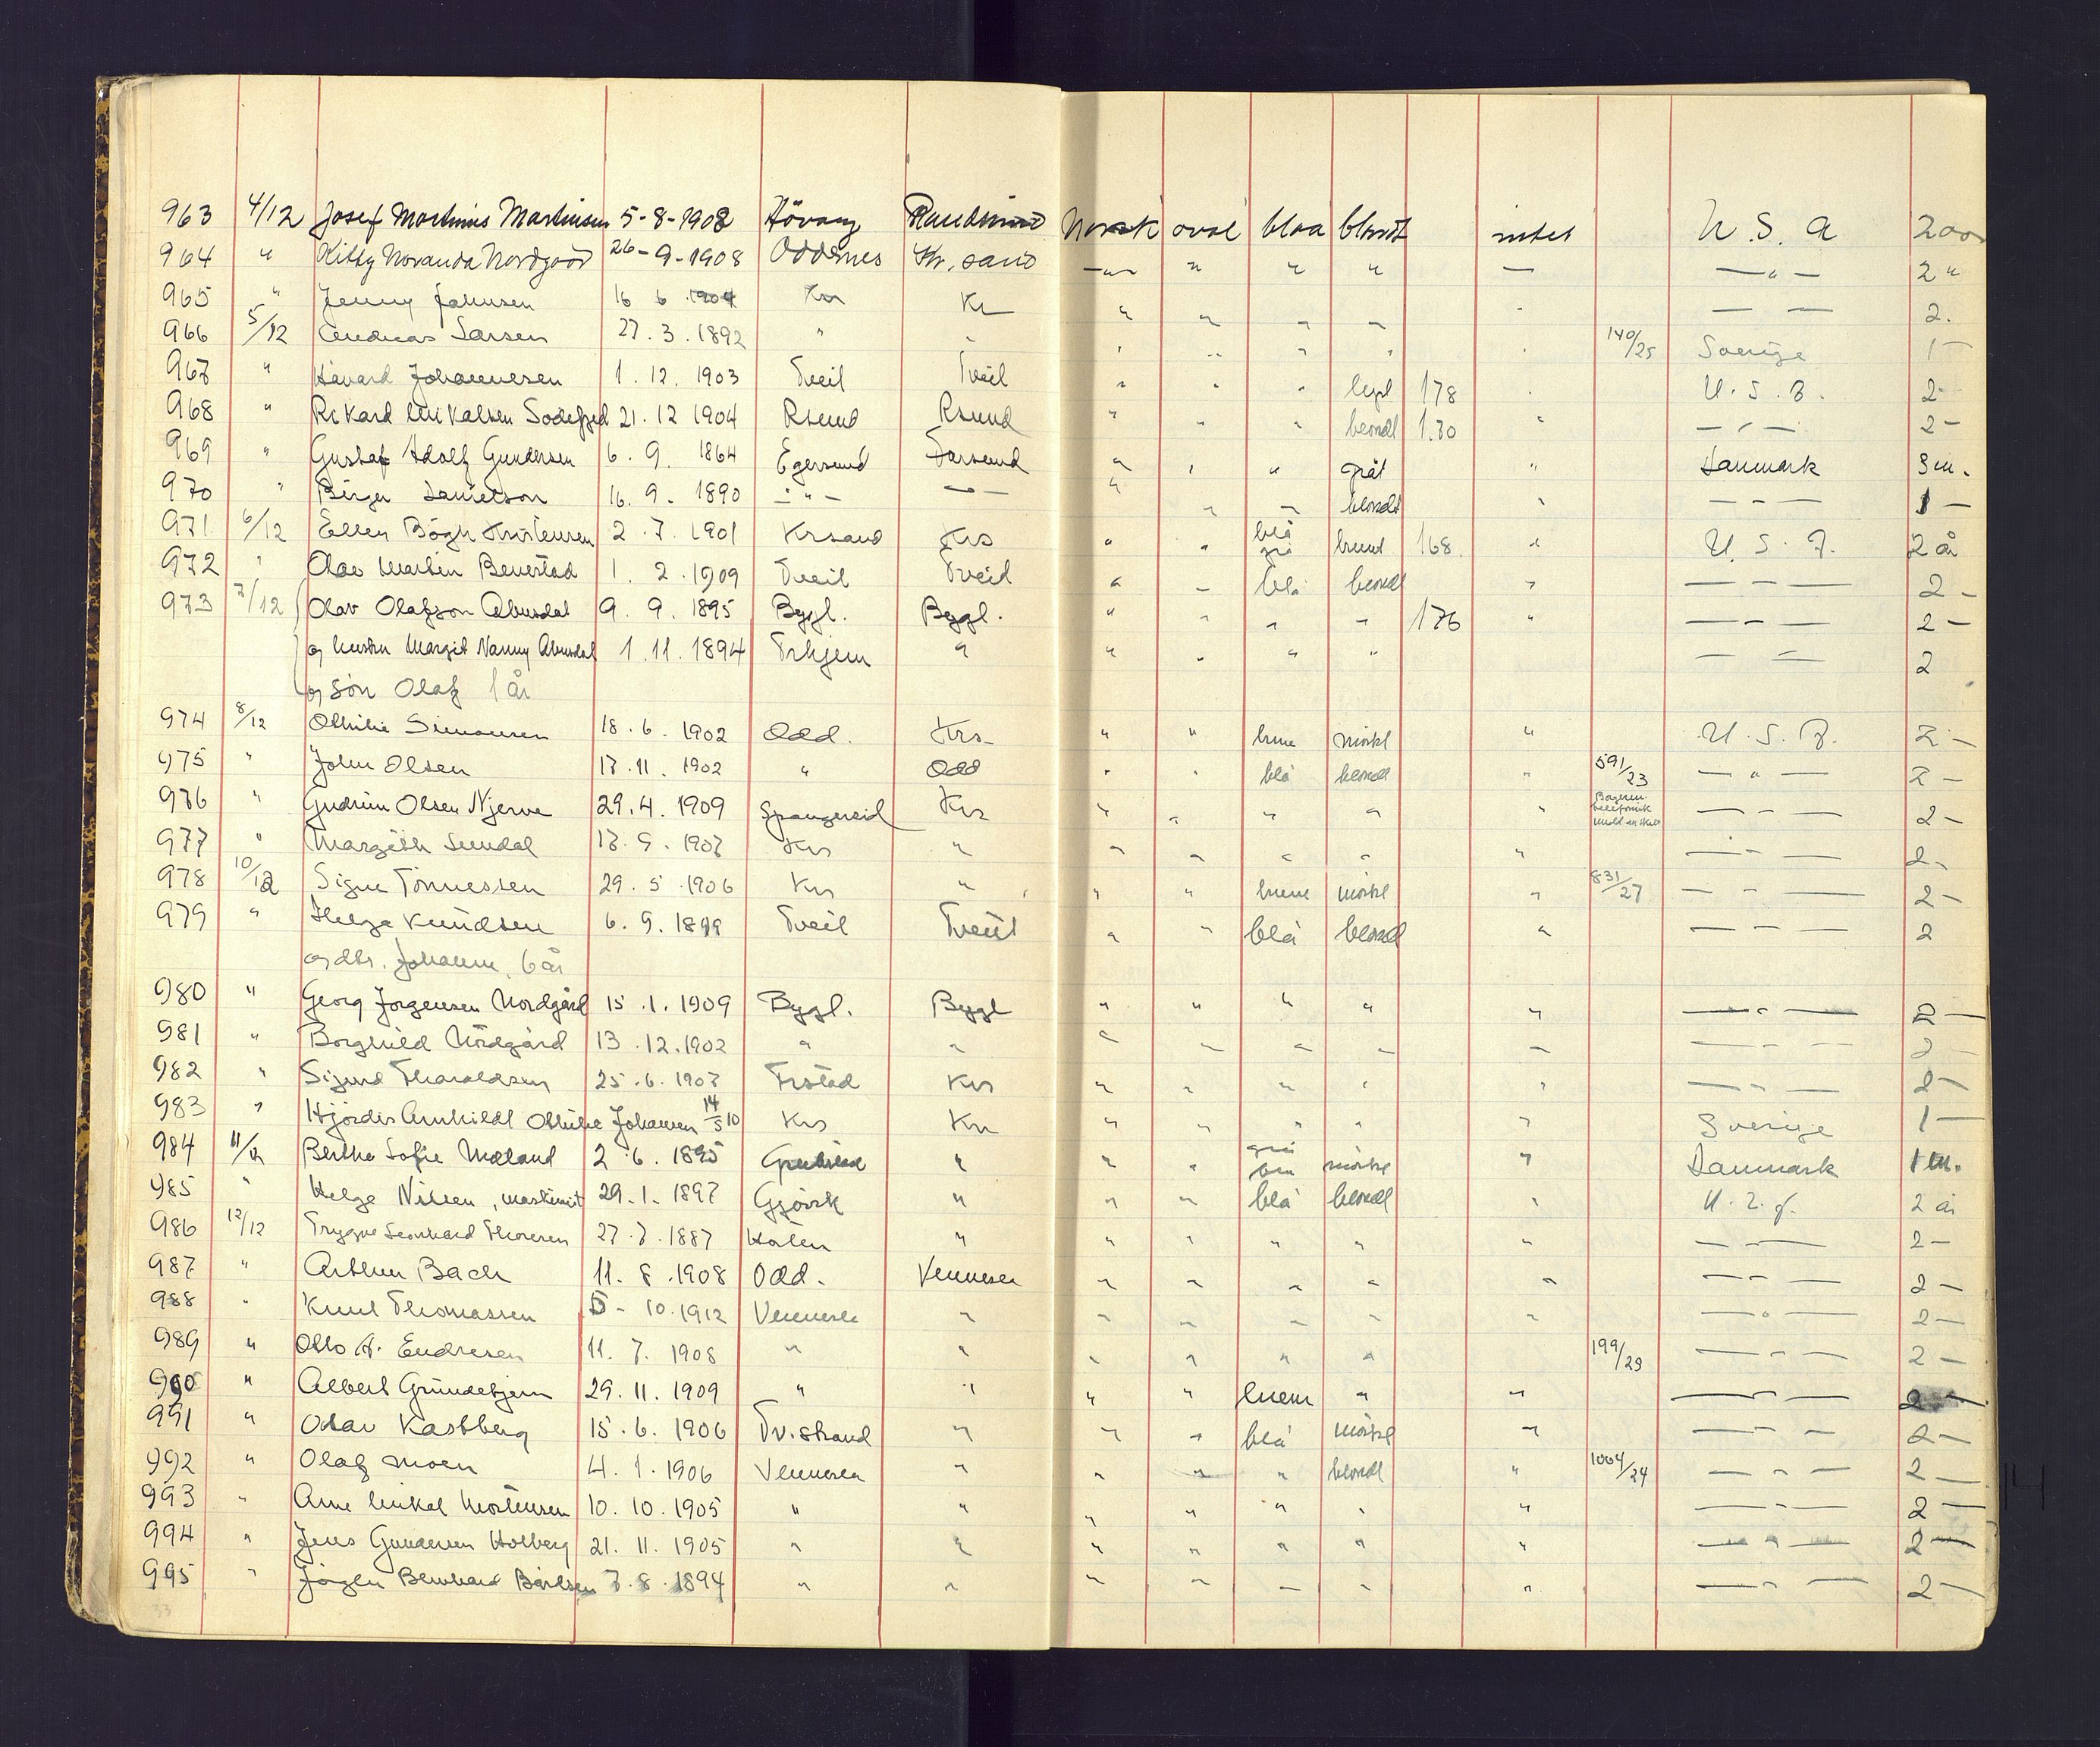 963 4/12 Josef Martinius Martinsen 5-8-1908 Hövaag Randesund Norsk oval blaa blondt intet U.S.A 2 aar
964 " Kitty Novanda Nordgaad 26-9-1908 Oddernes Kr.sand -"- " " " — —"— 2 "
965 " Jenny Johnsen 16 6 1904 Krs Kr " " " " " — — 2.
966 5/12 Andreas Larsen 27.3.1892 " " " " " " " 140/25 Sverige 1 —
967 " Håvard Johannesen 1.12.1903 Tveit Tveit " " " lyst 178 " U.S.A. 2 -
968 " Rikard Mikalsen Sodefjed 21.12 1904 Rsund Rsund " " " blondt 1.80 " —"— 2 -
969 " Gustaf Adolf Gundersen 6.9. 1864 Egersund Farsund " " " gråt " Danmark 3 m.
970 " Birger Danielson 16.9. 1890 -"- -"- " " " blondt " —"— 1 —
971 6/12 Ellen Bögh Kristensen 2.7.1901 Krsand Krs " " blå grå brunt 168. " U.S.A. 2 år
972 " Olav Martin Benestad 1.2.1909 Tveit Tveid " " blå blondt " —"— 2 -
973 7/12 Olav Olafson Åbusdal 9.9.1895 Bygl. Bygl. " " " " 176 " —"— 2 -
og hustru Margit Nanny Åbusdal 1.11.1894 " " " " " — — 2
og sön Olaf 1 år
974 8/12 Othilie Simonsen 18.6.1902 Odd. Krs " " brune mörkt " U.S.A. 2 -
975 " John Olsen 17.11.1902 " Odd " " blå blondt " 591/23 —"— 2 -
976 " Gudrun Olsen Njerve 29.4.1909 Spangereid Krs " " " " " —"— 2 -
977 " Margith Sundal 17.9.1907 Krs " " " " " " —"— 2 -
978 10/12 Signe Tönnessen 29.5.1906 Krs " " " brune mörkt " 831/27 —"— 2 -
979 " Helga Knudsen 6.9.1899 Tveit Tveit " " blå blondt " —"— 2
og dtr. Johanne, 6 år
980 " Georg Jorgensen Nordgård 15.1.1909 Bygl. Bygl " " " " " —"— 2 —
981 " Borghild Nordgård 13.12.1902 " " " " " " " —"— 2 —
982 " Sigurd Tharaldsen 25.6.1907 Frstad Krs " " " " " —"— 2 —
983 " Hjördis Arnhildt Othilie Johansen 14/5 10 Krs Krs " " " " " Sverige 1 —
984 11/12 Bertha Sofie Mæland 2.6.1895 Grimstad " " " grå mörkt " Danmark 1 m.
985 " Helge Nilsen, maskinist 29.1.1897 Gjövik " " " blå blondt " U.S.A. 2 år
986 12/12 Trygve Leonhard Thoresen 27.7.1887 " " " " " " —"— 2 -
987 " Arthur Bach 11.8.1908 Odd. Vennesla " " " " " —"— 2 -
988 " Knut Thomassen 5-10.1912 Vennesla " " " " " " —"— 2 —
989 " Otto A. Endresen 11.7.1908 " " " " " " " 199/29 —"— 2 -
990 " Albert Grundetjern 29.11.1909 " " " " " " —"— 2 -
991 " Oskar Kastberg 15.6.1906 Tv.strand " " " blå mörkt " —"— 2 -
992 " Olaf Moen 4.1.1906 Vennesla " " " " blondt " 1004/24 —"— 2 —
993 " Arne Mikal Mortensen 10.10.1905 " " " " " " " —"— 2 —
994 " Jens Gundersen Holberg 21.11.1905 " " " " " " " —"— 2 —
995 " Jörgen Bernhard Bårdsen 7.8.1894 " " " " " " " —"— 2 —